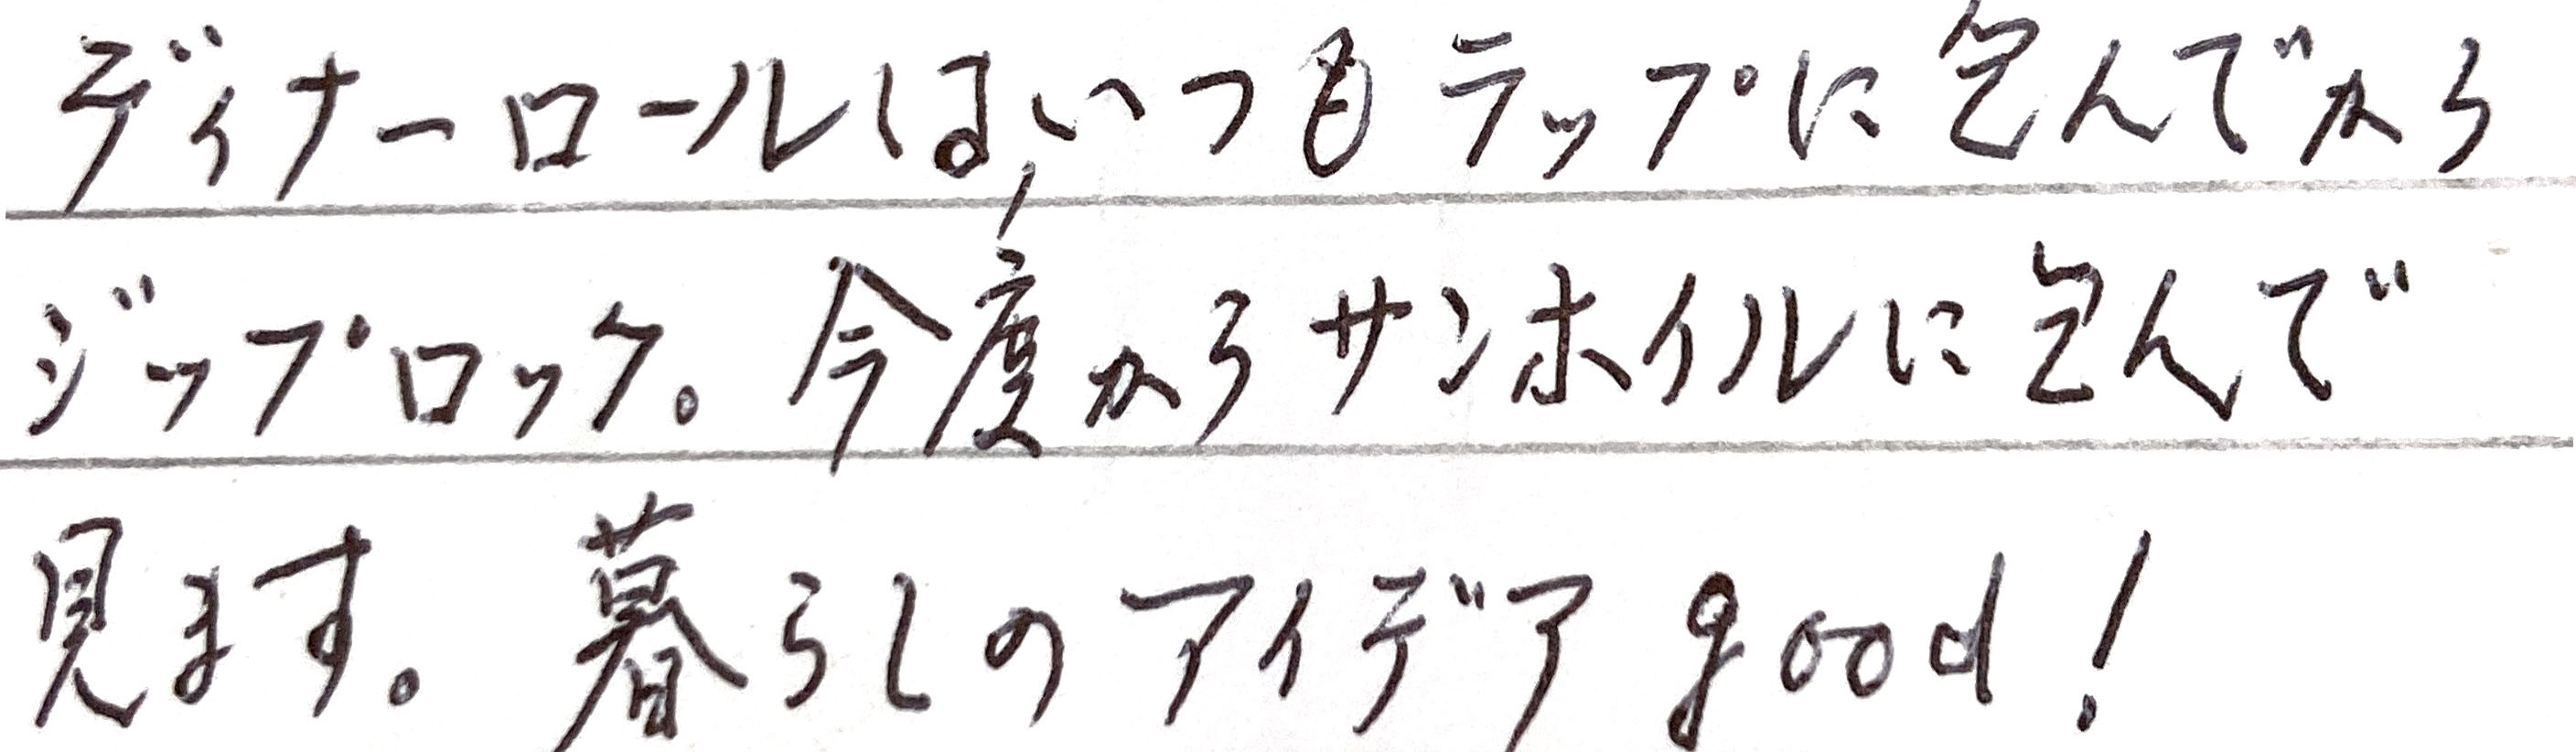 ディナーロールは,いつもラップに包んでから
ジップロック。今度からサンホイルに包んで
見ます。暮らしのアイデアgood!